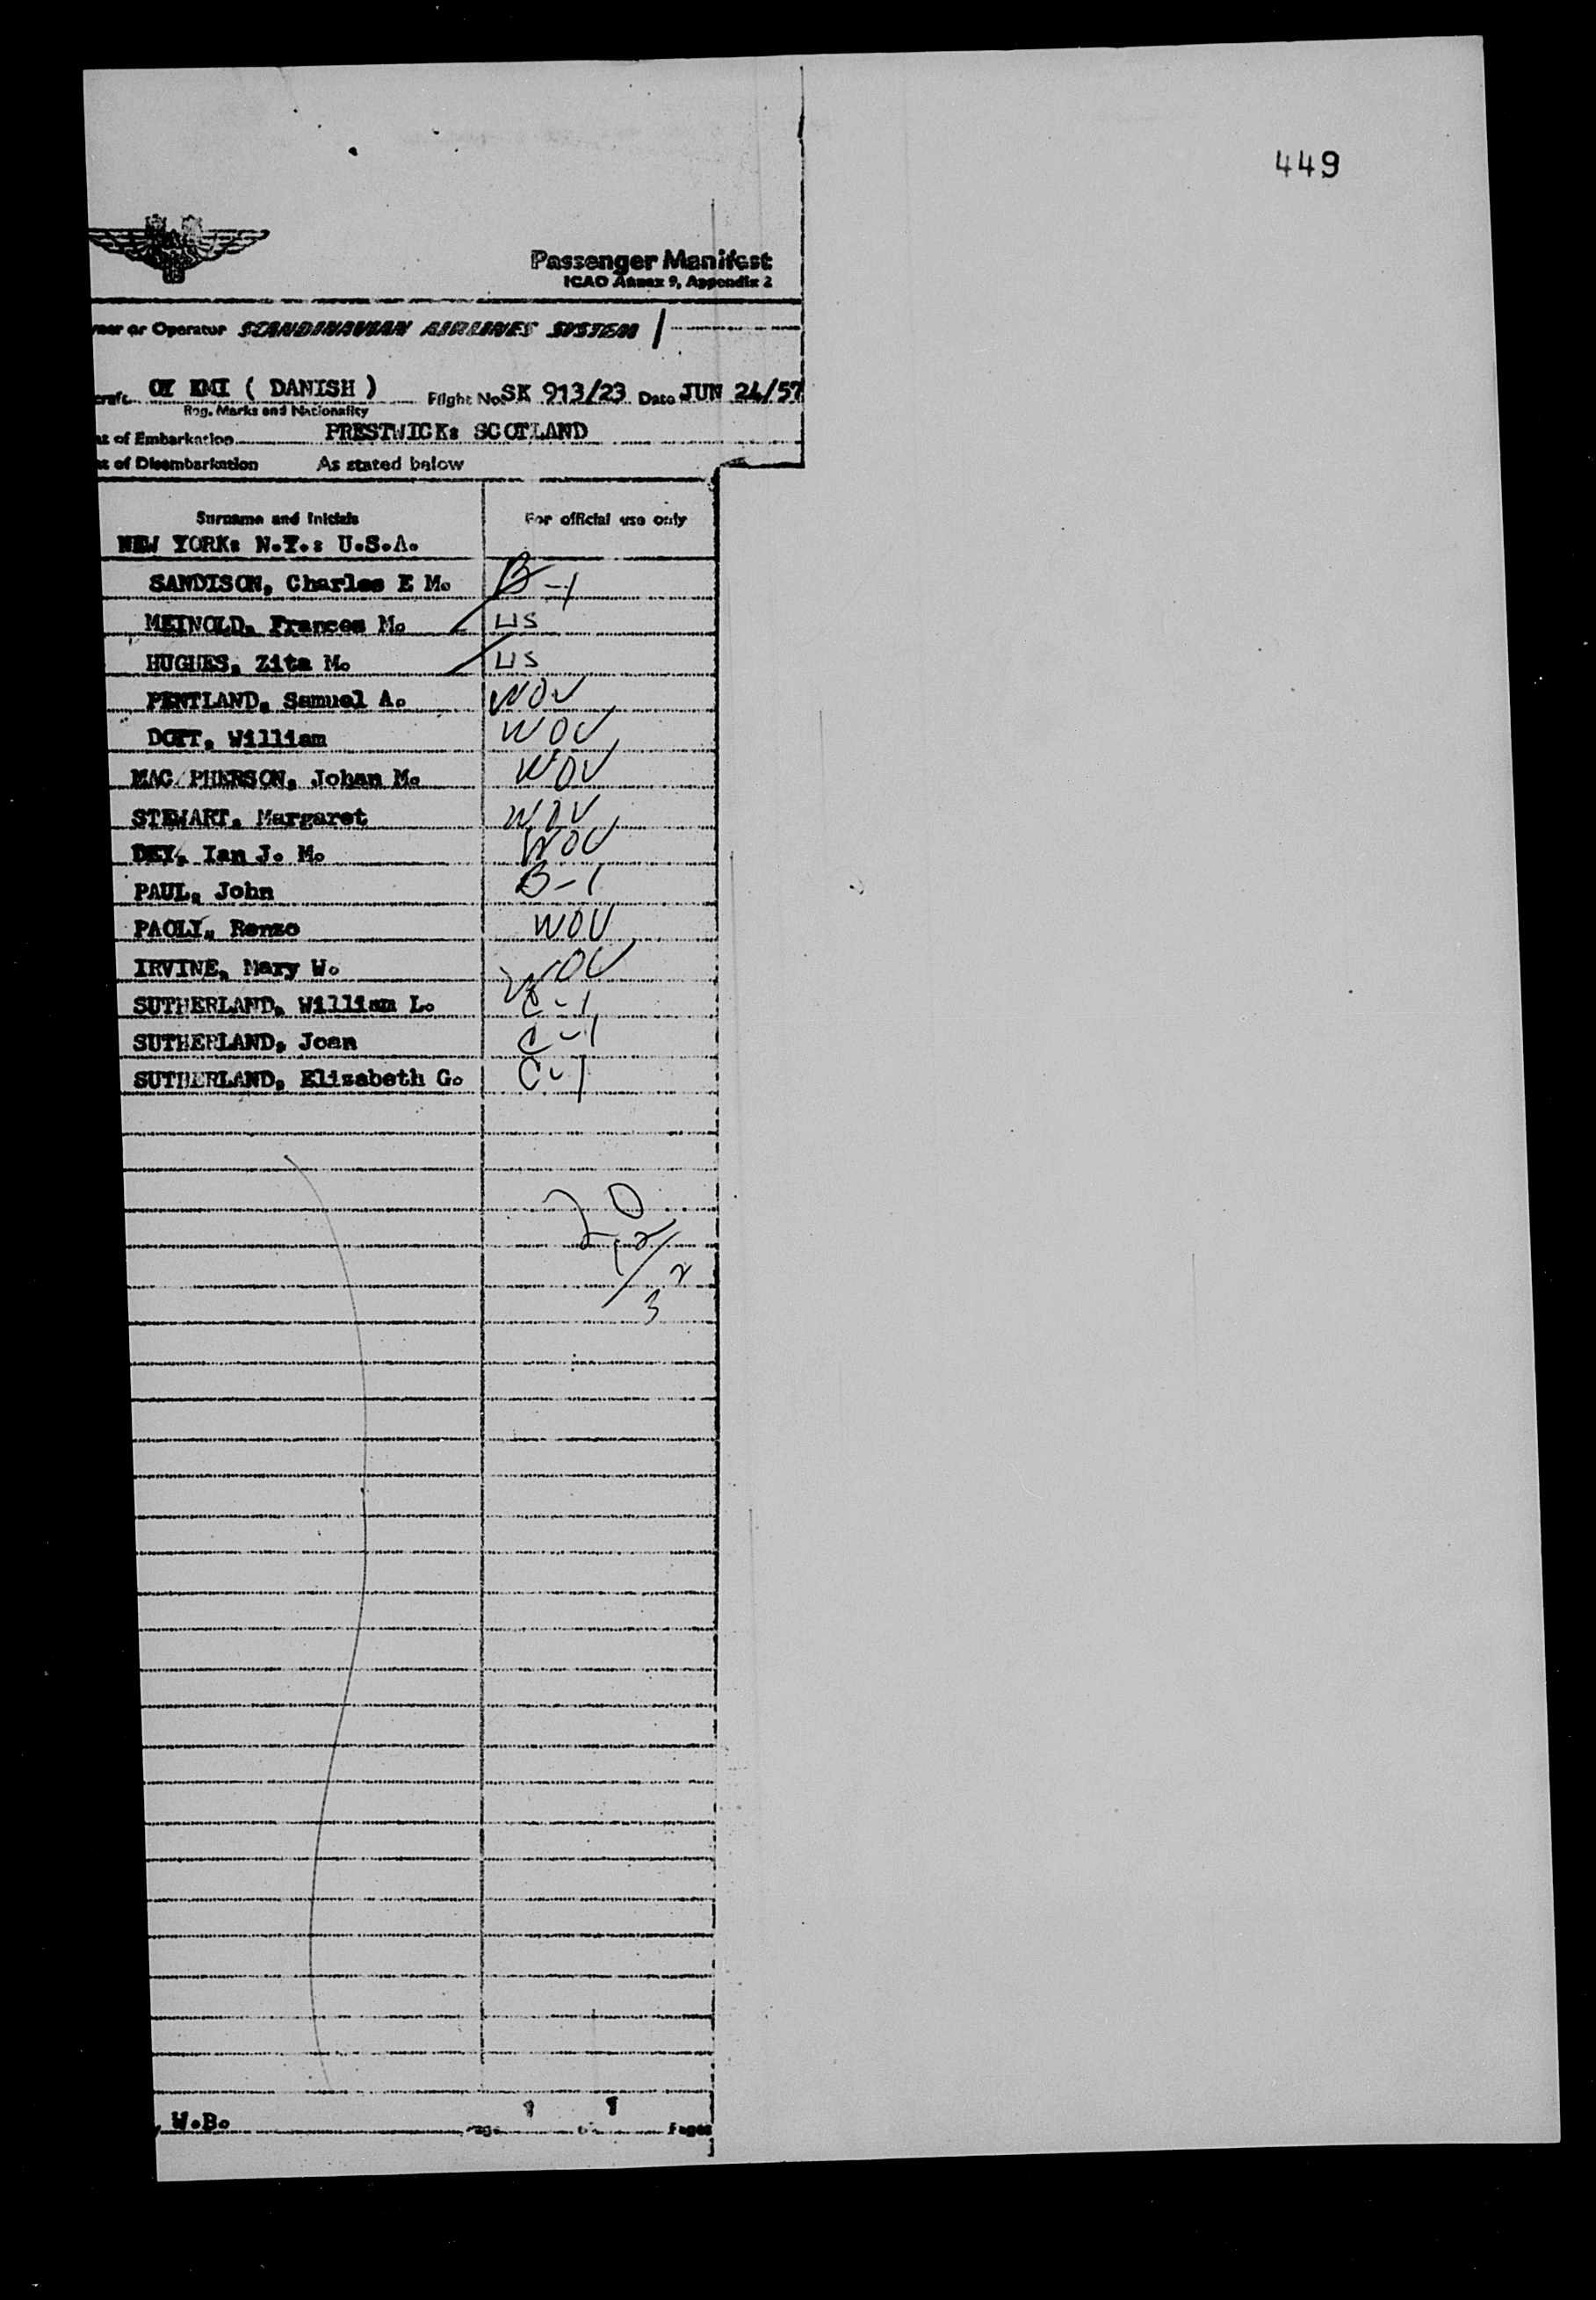 449
Passenger Manifest
ICAO Annex 9, Appendix 2
ner or Operator SCANDINAVIAN AIRLINES SYSTEM
craft OY KMI ( DANISH ) Flight No. SK 913/23 Date JUN 24/57
Reg. Marks and Nationality
nt of Embarkation PRESTWICK: SCOTLAND
nt of Disembarkation As stated below
Surname and Initials For official use only
NEW YORK: N.Y.: U.S.A.
SANDISON, Charles E M. B-1
MEINOLD, Frances M. US
HUGHES, Zita M. US
PENTLAND, Samuel A. WOV
DOIT, William WOV
MAC PHERSON, Johan M. WOV
STEWART, Margaret WOV
DEY, Ian J. M. WOV
PAUL, John B-1
PAOLI, Renzo WOV
IRVINE, Mary W. WOV
SUTHERLAND, William L. C-1
SUTHERLAND, Joan C-1
SUTHERLAND, Elizabeth G. C-1
W.B. Page 1 of 1 Pages